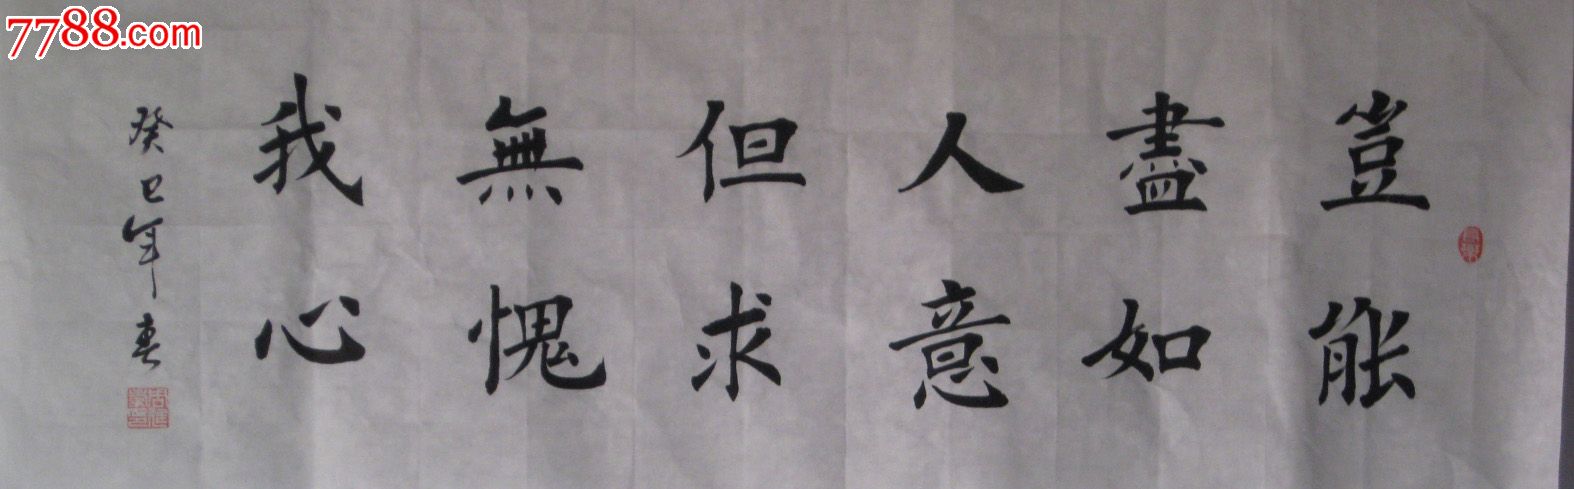 7788.com
豈能
盡如
人意
但求
無愧
我心
癸巳年春